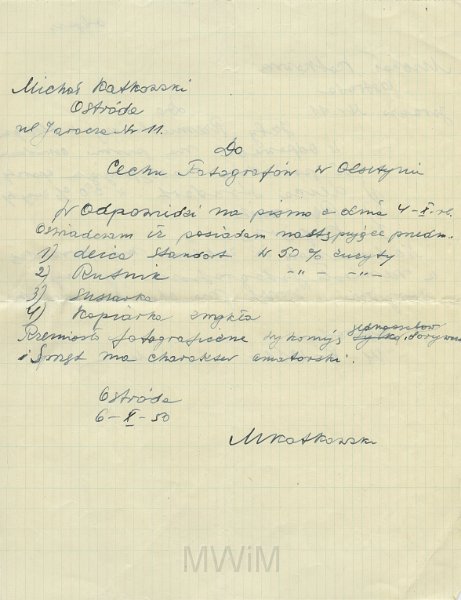 Michał Katkowski
Ostróda
ul Jaracza Nr 11.
Do
Cechu Fotografów w Olsztynie
W Odpowiedzi na pismo z dnia 4-X-br.
Oświadczam iż posiadam następujące przedm.
1) Leica Standart w 50% zużyty
2) -"- -"-
3) Suszarka
4) Kopiarka zwykła
Rzemiosło fotograficzne wykonuję jednoosobow
i Sprzęt ma charakter amatorski.
Ostróda
6-X-50
MKatkowski
MWiM